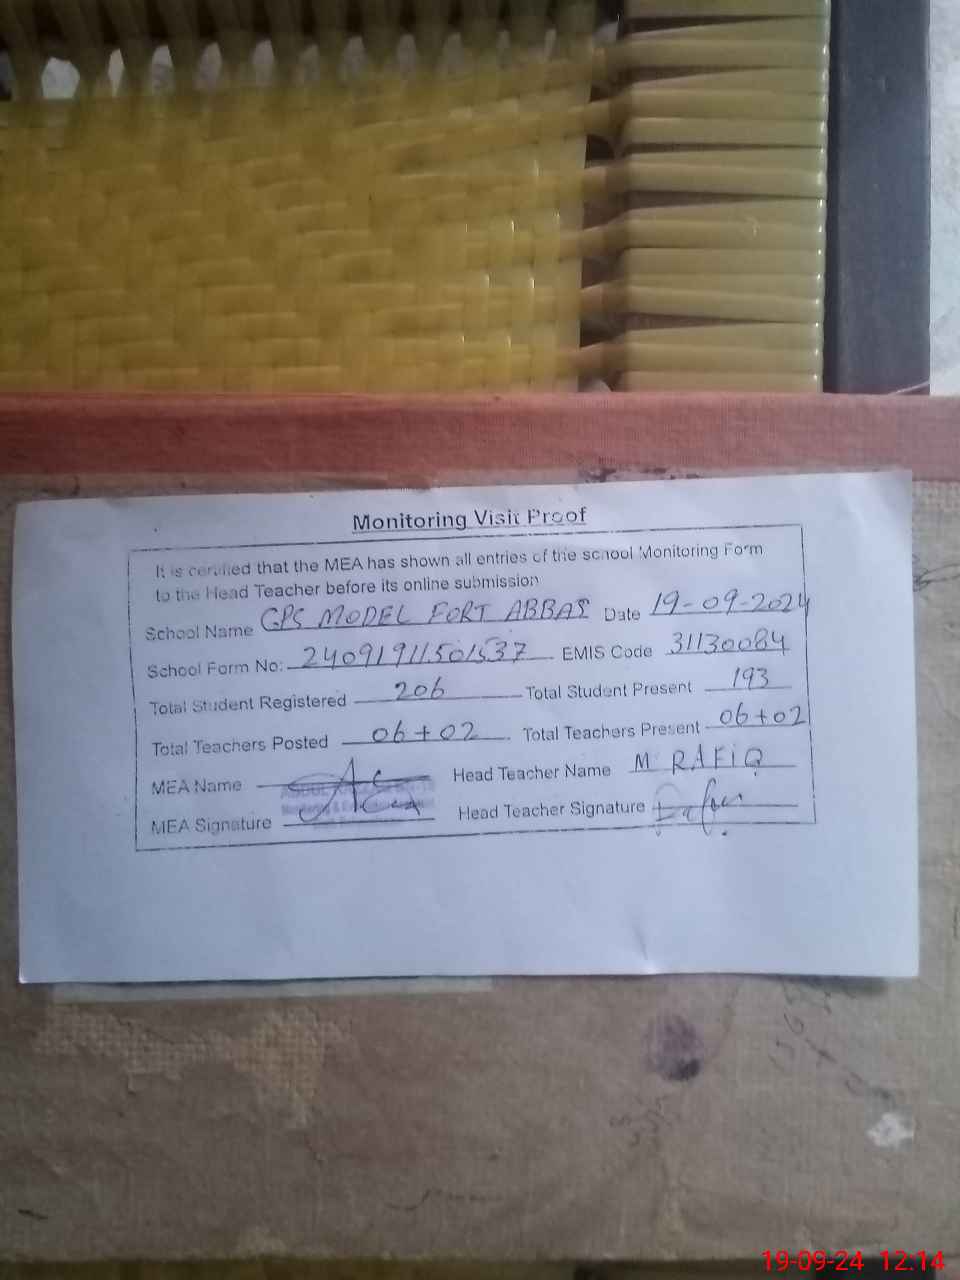 Monitoring Visit Proof
It is certified that the MEA has shown all entries of the school Monitoring Form
to the Head Teacher before its online submission
School Name GPS MODEL FORT ABBAS Date 19-09-2024
School Form No: 24091911501537 EMIS Code 31130084
Total Student Registered 206 Total Student Present 193
Total Teachers Posted 06+02 Total Teachers Present 06+02
MEA Name Head Teacher Name M RAFIQ
MEA Signature Head Teacher Signature
19-09-24 12:14